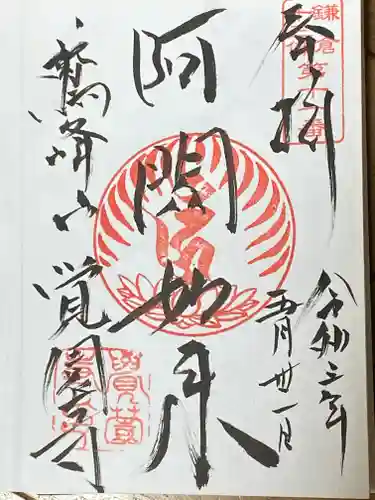 奉拝
鎌倉
第十一番
令和三年
五月卅一日
阿閦如来
鷲峰山覚園寺